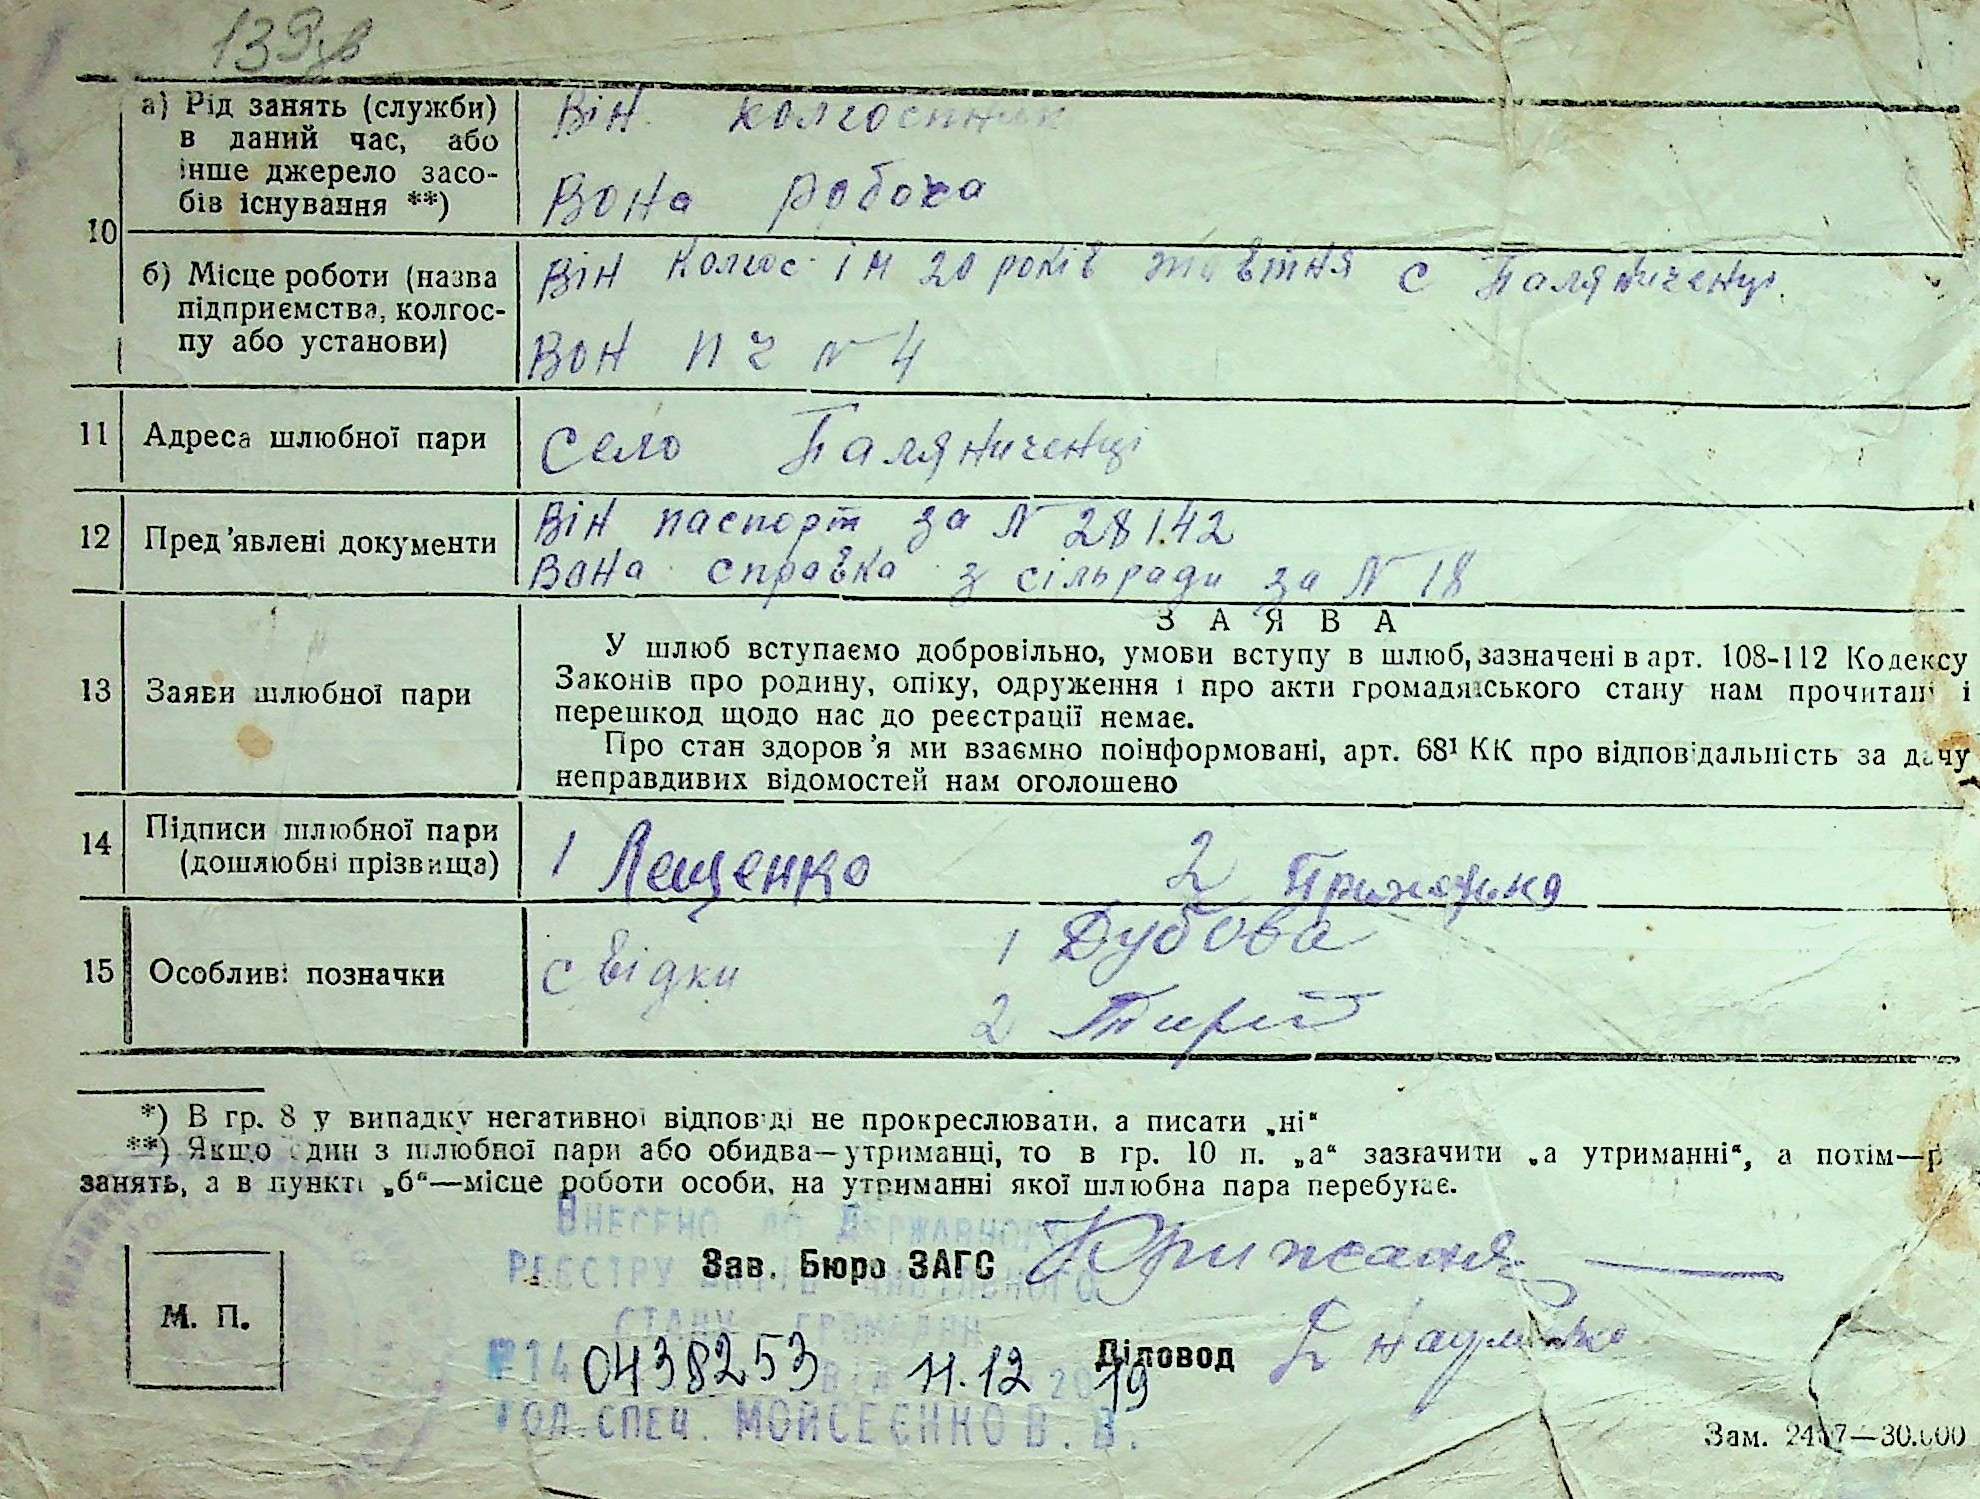 139зв
а) Рід занять (служби)
в даний час, або
інше джерело засо-
бів існування **)
Він колгоспник
Вона робоча
10
б) Місце роботи (назва
підприємства, колгос-
пу або установи)
Він колгос. ім 20 років жовтня с Паляниченці.
Вон П Ч N 4
11 Адреса шлюбної пари
Село Паляниченці
12 Пред'явлені документи
Він паспорт за N 28142
Вона справка з сільради за N 18
13 Заяви шлюбної пари
ЗАЯВА
У шлюб вступаємо добровільно, умови вступу в шлюб, зазначені в арт. 108-112 Кодексу
Законів про родину, опіку, одруження і про акти громадянського стану нам прочитані і
перешкод щодо нас до реєстрації немає.
Про стан здоров'я ми взаємно поінформовані, арт. 68¹ КК про відповідальність за дачу
неправдивих відомостей нам оголошено
14 Підписи шлюбної пари
(дошлюбні прізвища)
1 Лещенко 2
15 Особливі позначки
свідки 1 Дубова
2
*) В гр. 8 у випадку негативної відповіді не прокреслювати, а писати „ні“
**) Якщо один з шлюбної пари або обидва—утриманці, то в гр. 10 п. „а“ зазначити „а утриманні“, а потім—р
занять, а в пункті „б“—місце роботи особи, на утриманні якої шлюбна пара перебуває.
Внесено до Державного
реєстру актів цивільного
стану громадян
№14 0438253 від 11.12 2019
Гол.спец. Мойсеєнко В. В.
Зав. Бюро ЗАГС
М. П.
Діловод
Зам. 2437—30.000